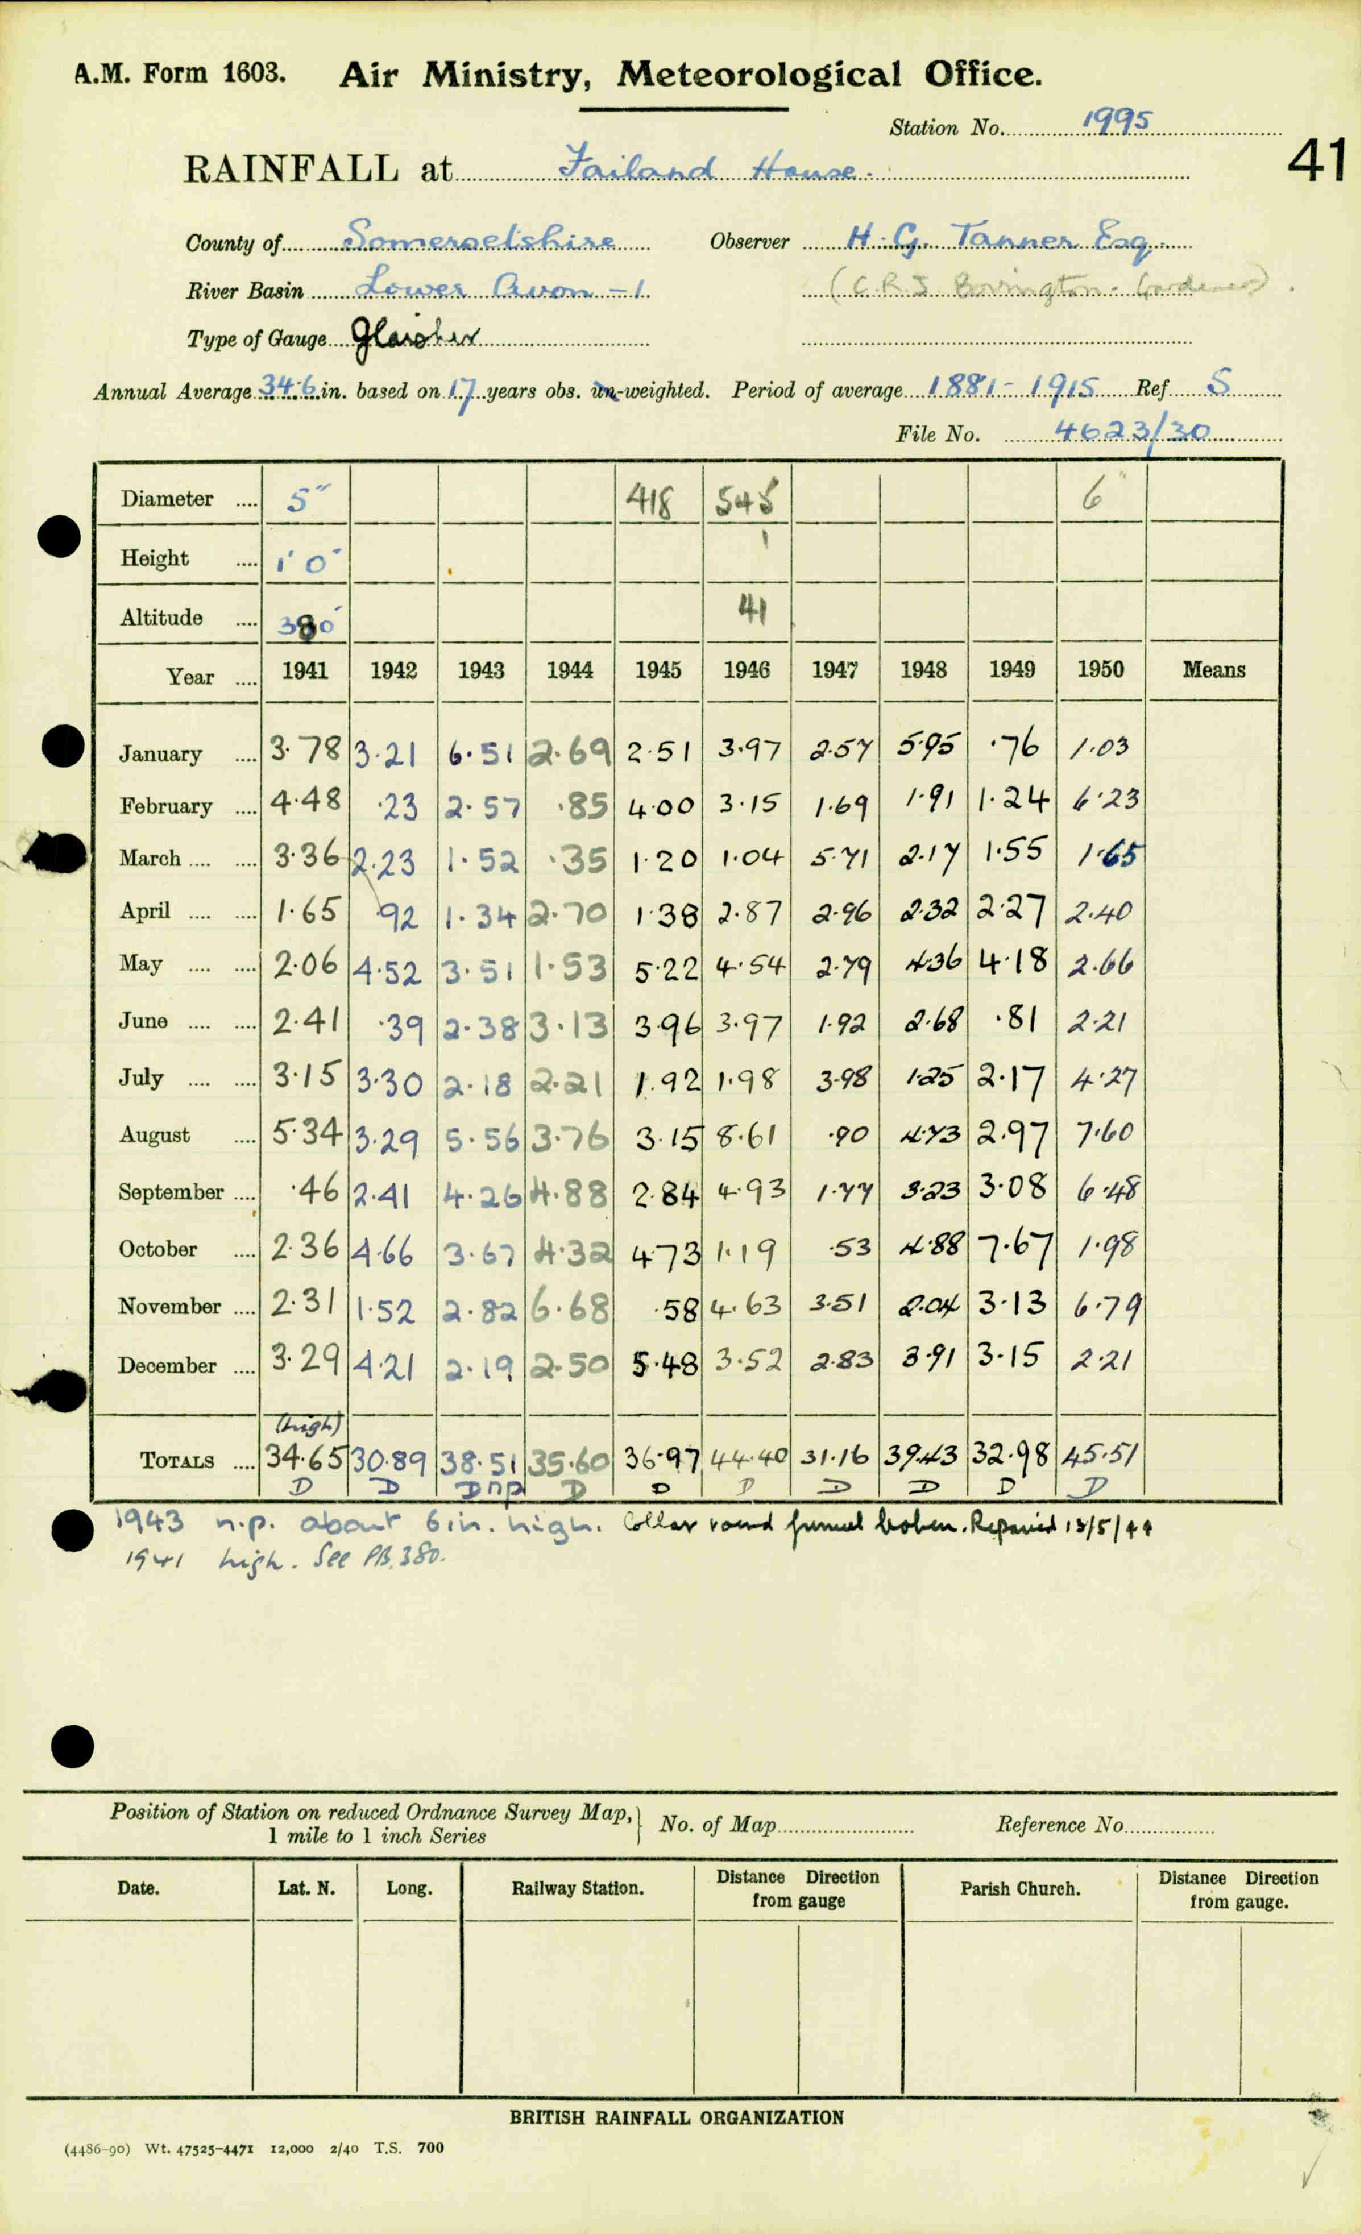 A.M. Form 1603. Air Ministry, Meteorological Office.
Station No. 1995
41
RAINFALL at Failand House.
County of Somersetshire Observer H. G. Tanner Esq.
River Basin Lower Avon -1 (C.R.J. Borrington. Gardener).
Type of Gauge Glaisher
Annual Average 34.6 in. based on 17 years obs. un-weighted. Period of average 1881-1915 Ref S
File No. 4623/30
Diameter .... 5" 418 545 6"
Height .... 1' 0" 1
Altitude .... 380' 41
Year .... 1941 1942 1943 1944 1945 1946 1947 1948 1949 1950 Means
January .... 3.78 3.21 6.51 2.69 2.51 3.97 2.57 5.95 .76 1.03
February .... 4.48 .23 2.57 .85 4.00 3.15 1.69 1.91 1.24 6.23
March .... .... 3.36 2.23 1.52 .35 1.20 1.04 5.71 2.17 1.55 1.65
April .... .... 1.65 .92 1.34 2.70 1.38 2.87 2.96 2.32 2.27 2.40
May .... .... 2.06 4.52 3.51 1.53 5.22 4.54 2.79 4.36 4.18 2.66
June .... .... 2.41 .39 2.38 3.13 3.96 3.97 1.92 2.68 .81 2.21
July .... .... 3.15 3.30 2.18 2.21 1.92 1.98 3.98 1.25 2.17 4.27
August .... 5.34 3.29 5.56 3.76 3.15 8.61 .90 4.73 2.97 7.60
September .... .46 2.41 4.26 4.88 2.84 4.93 1.77 3.23 3.08 6.48
October .... 2.36 4.66 3.67 4.32 4.73 1.19 .53 4.88 7.67 1.98
November .... 2.31 1.52 2.82 6.68 .58 4.63 3.51 2.04 3.13 6.79
December .... 3.29 4.21 2.19 2.50 5.48 3.52 2.83 3.91 3.15 2.21
(high)
TOTALS .... 34.65 30.89 38.51 35.60 36.97 44.40 31.16 39.43 32.98 45.51
D D Dnp D D D D D D D
1943 n.p. about 6in. high. Collar round funnel broken. Repaired 13/5/44
1941 high. See PB.380.
Position of Station on reduced Ordnance Survey Map, 1 mile to 1 inch Series No. of Map Reference No.
Date. Lat. N. Long. Railway Station. Distance Direction from gauge Parish Church. Distance Direction from gauge.
BRITISH RAINFALL ORGANIZATION
(4486-90) Wt. 47525-4471 12,000 2/40 T.S. 700